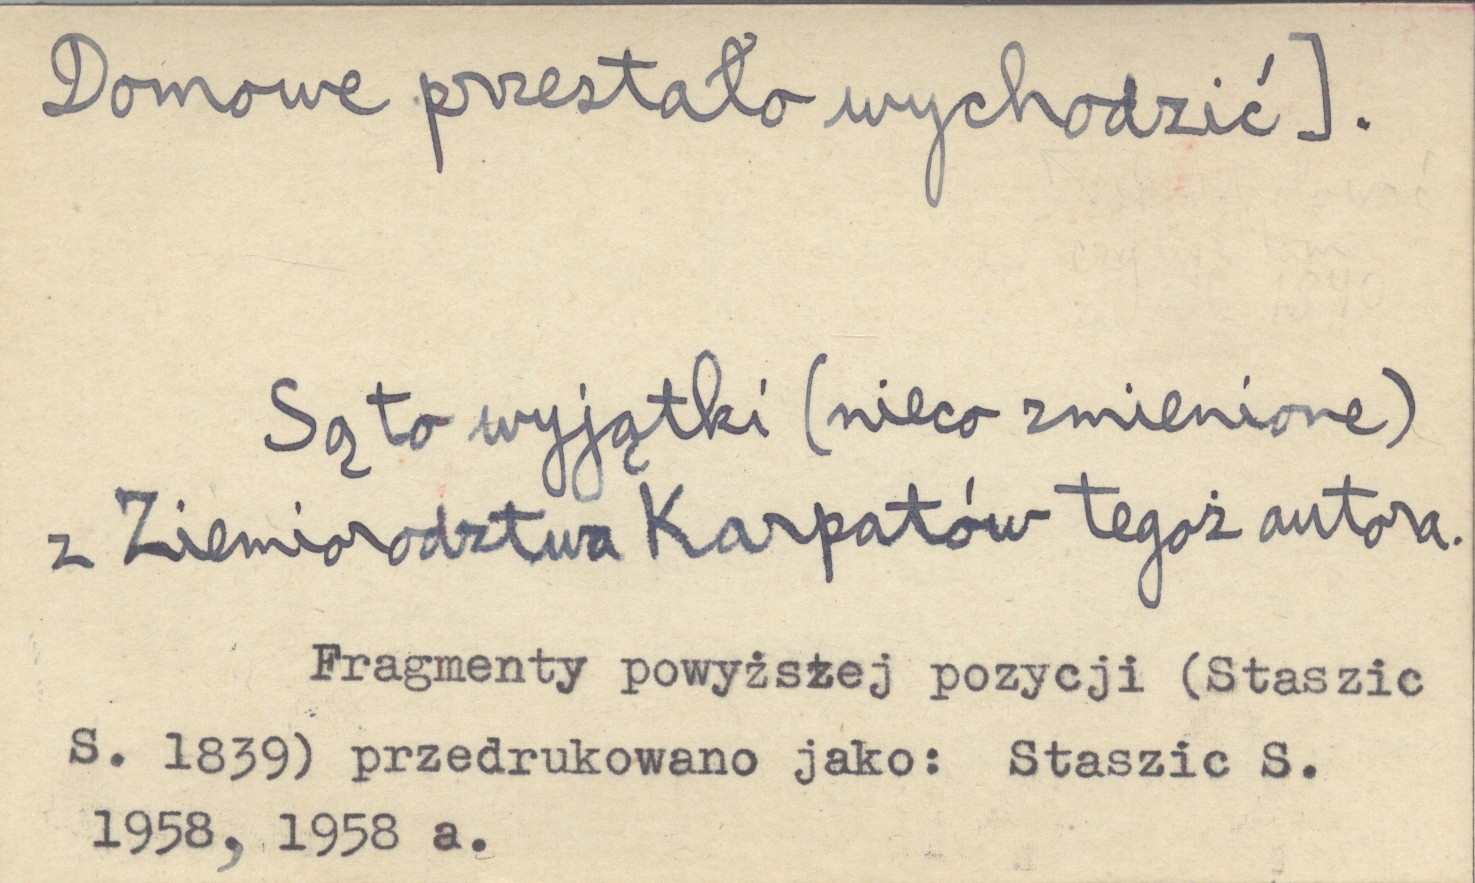 Domowe przestało wychodzić].
Są to wyjątki (nieco zmienione)
z Ziemiorodztwa Karpatów tegoż autora.
Fragmenty powyższej pozycji (Staszic
S. 1839) przedrukowano jako: Staszic S.
1958, 1958 a.